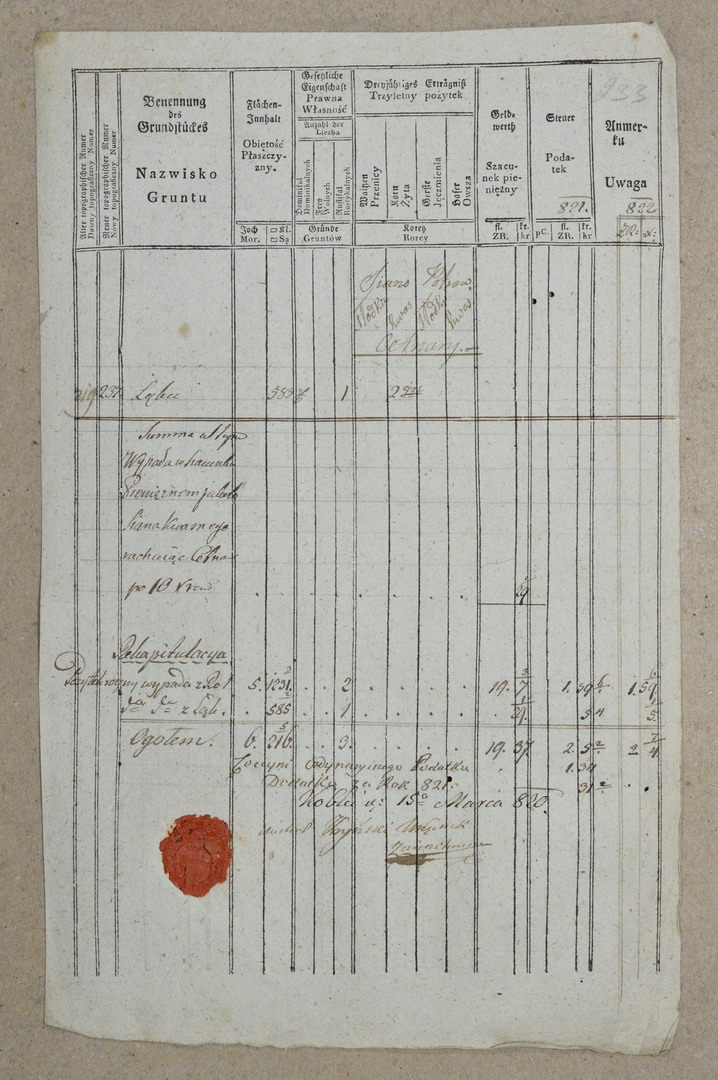 933
Alter topographischer Numer
Dawny topograficzny Numer
Neuer topographischer Numer
Nowy topograficzny Numer
Benennung
des
Grundstückes
Nazwisko
Gruntu
Flächen-
Innhalt
Obiętość
Płaszczy-
zny.
Joch
Mor.
□ Kl.
□ Są
Gesetzliche
Eigenschaft
Prawna
Własność
Anzahl der
Liczba
Dominikal
Dominikalnych
Frey
Wolnych
Rustikal
Rustykalnych
Gründe
Gruntów
Dreyjähriges Erträgniß
Trzyletny pożytek
Waitzen
Przenicy
Korn
Żyta
Gerste
Jęczmienia
Hafer
Owsza
Koretz
Korcy
Geld-
werth
Szacu-
nek pie-
niężny
fl.
ZR.
kr.
kr
Steuer
Poda-
tek
821.
pC.
fl.
ZR.
kr.
kr
Anmer-
ku
Uwaga
822.
ZR:
x:
Siano Potraw.
Słodkie
Kwas
Słodkie
Kwas
Cetnary.
219 237. Łąka 585 1 2
Summa
Wypada w szacunku
Pieniężnem
Siana Kwasnego
rachuiąc Cetnar
po 10 . . . . . 29
Rekapitulacya
Pożytek roczny wypada z Rol 5. 1231. . . 2 . . . . . 19. 7 1. 59 1. 59
z Łąk . . 585 . . 1 . . . . . 29. 5
Ogołem. 6. 216. . . 3. . . . . . 19. 37. 2. 5 2 4
ordynaryinego Podatku 1. 34
Dodatku za Rok 821. 31
15 Marca 820.